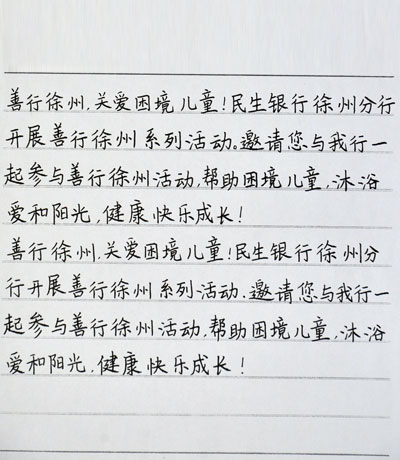 善行徐州,关爱困境儿童!民生银行徐州分行
开展善行徐州系列活动。邀请您与我行一
起参与善行徐州活动,帮助困境儿童,沐浴
爱和阳光,健康快乐成长!
善行徐州,关爱困境儿童!民生银行徐州分
行开展善行徐州系列活动.邀请您与我行一
起参与善行徐州活动,帮助困境儿童,沐浴
爱和阳光,健康快乐成长!